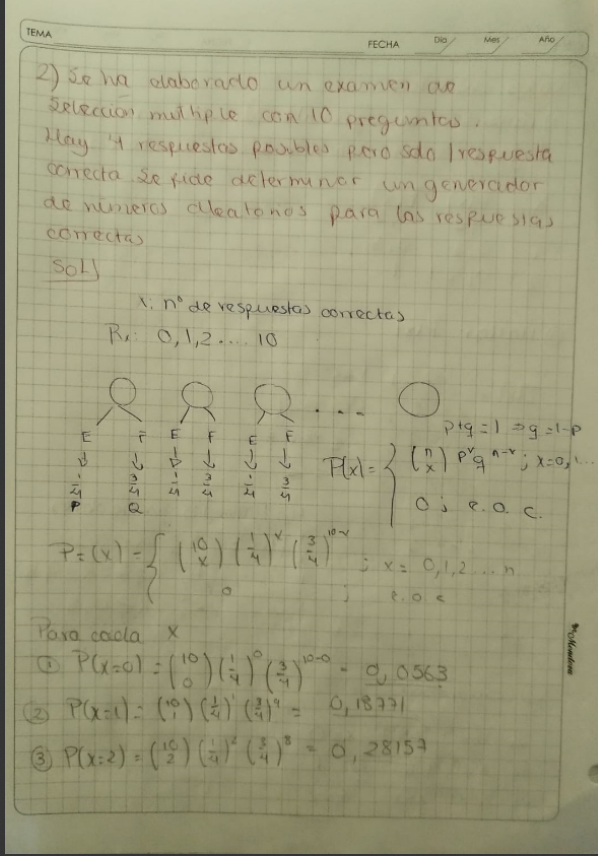 TEMA
FECHA Día Mes Año
2) Se ha elaborado un examen de
Seleccion multiple con 10 preguntas.
Hay 4 respuestas posibles pero solo 1 respuesta
correcta se pide determinar un generador
de numeros aleatorios para las respuestas
correctas
SOL)
X: n° de respuestas correctas
Rx: 0,1,2....10
....
p+q=1 ⇒ q=1-p
E F E F E F
1/4 3/4 1/4 3/4 1/4 3/4
P Q
P(x) = { (n x) p^x q^n-x ; x=0,1...
0 ; e.o.c.
P=(x) = { (10 x) (1/4)^x (3/4)^10-x ; x = 0,1,2...n
0 ; e.o.c
Para cada X
① P(x=0) = (10 0) (1/4)^0 (3/4)^10-0 = 0,0563
② P(x=1) = (10 1) (1/4)^1 (3/4)^9 = 0,18771
③ P(x=2) = (10 2) (1/4)^2 (3/4)^8 = 0,28157